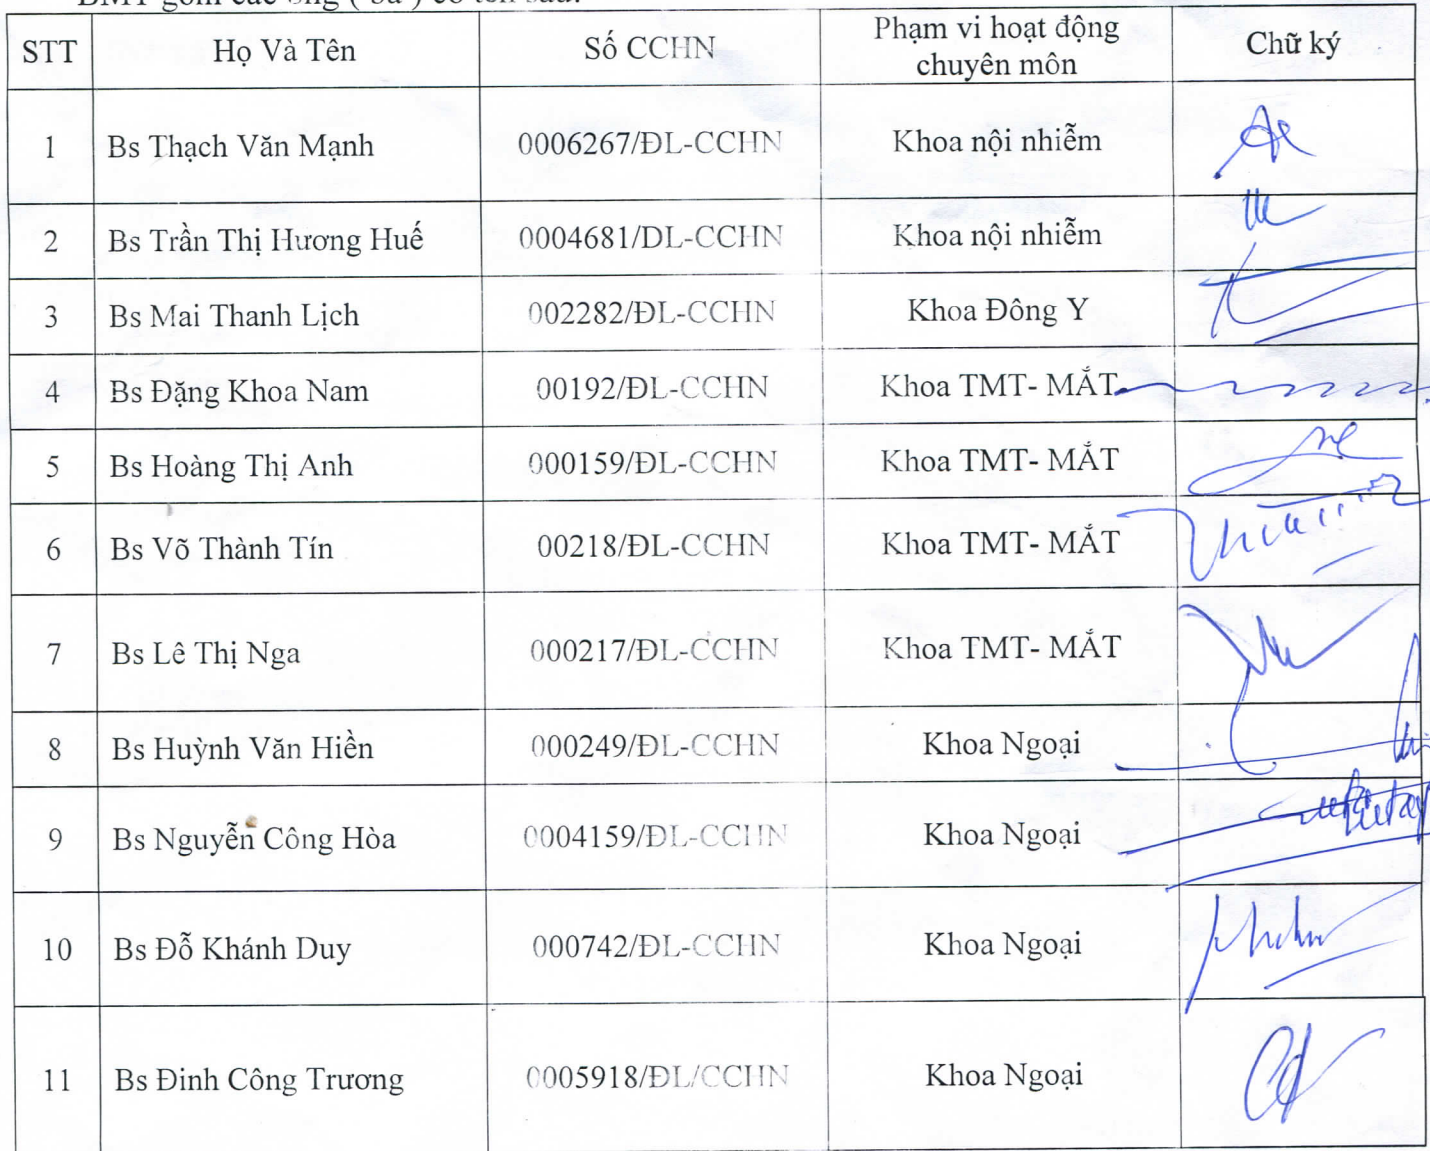 BMT gồm các ông ( bà ) có tên sau:
STT Họ Và Tên Số CCHN Phạm vi hoạt động chuyên môn Chữ ký
1 Bs Thạch Văn Mạnh 0006267/ĐL-CCHN Khoa nội nhiễm
2 Bs Trần Thị Hương Huế 0004681/DL-CCHN Khoa nội nhiễm
3 Bs Mai Thanh Lịch 002282/ĐL-CCHN Khoa Đông Y
4 Bs Đặng Khoa Nam 00192/ĐL-CCHN Khoa TMT- MẮT
5 Bs Hoàng Thị Anh 000159/ĐL-CCHN Khoa TMT- MẮT
6 Bs Võ Thành Tín 00218/ĐL-CCHN Khoa TMT- MẮT
7 Bs Lê Thị Nga 000217/ĐL-CCHN Khoa TMT- MẮT
8 Bs Huỳnh Văn Hiền 000249/ĐL-CCHN Khoa Ngoại
9 Bs Nguyễn Công Hòa 0004159/ĐL-CCHN Khoa Ngoại
10 Bs Đỗ Khánh Duy 000742/ĐL-CCHN Khoa Ngoại
11 Bs Đinh Công Trương 0005918/ĐL/CCHN Khoa Ngoại